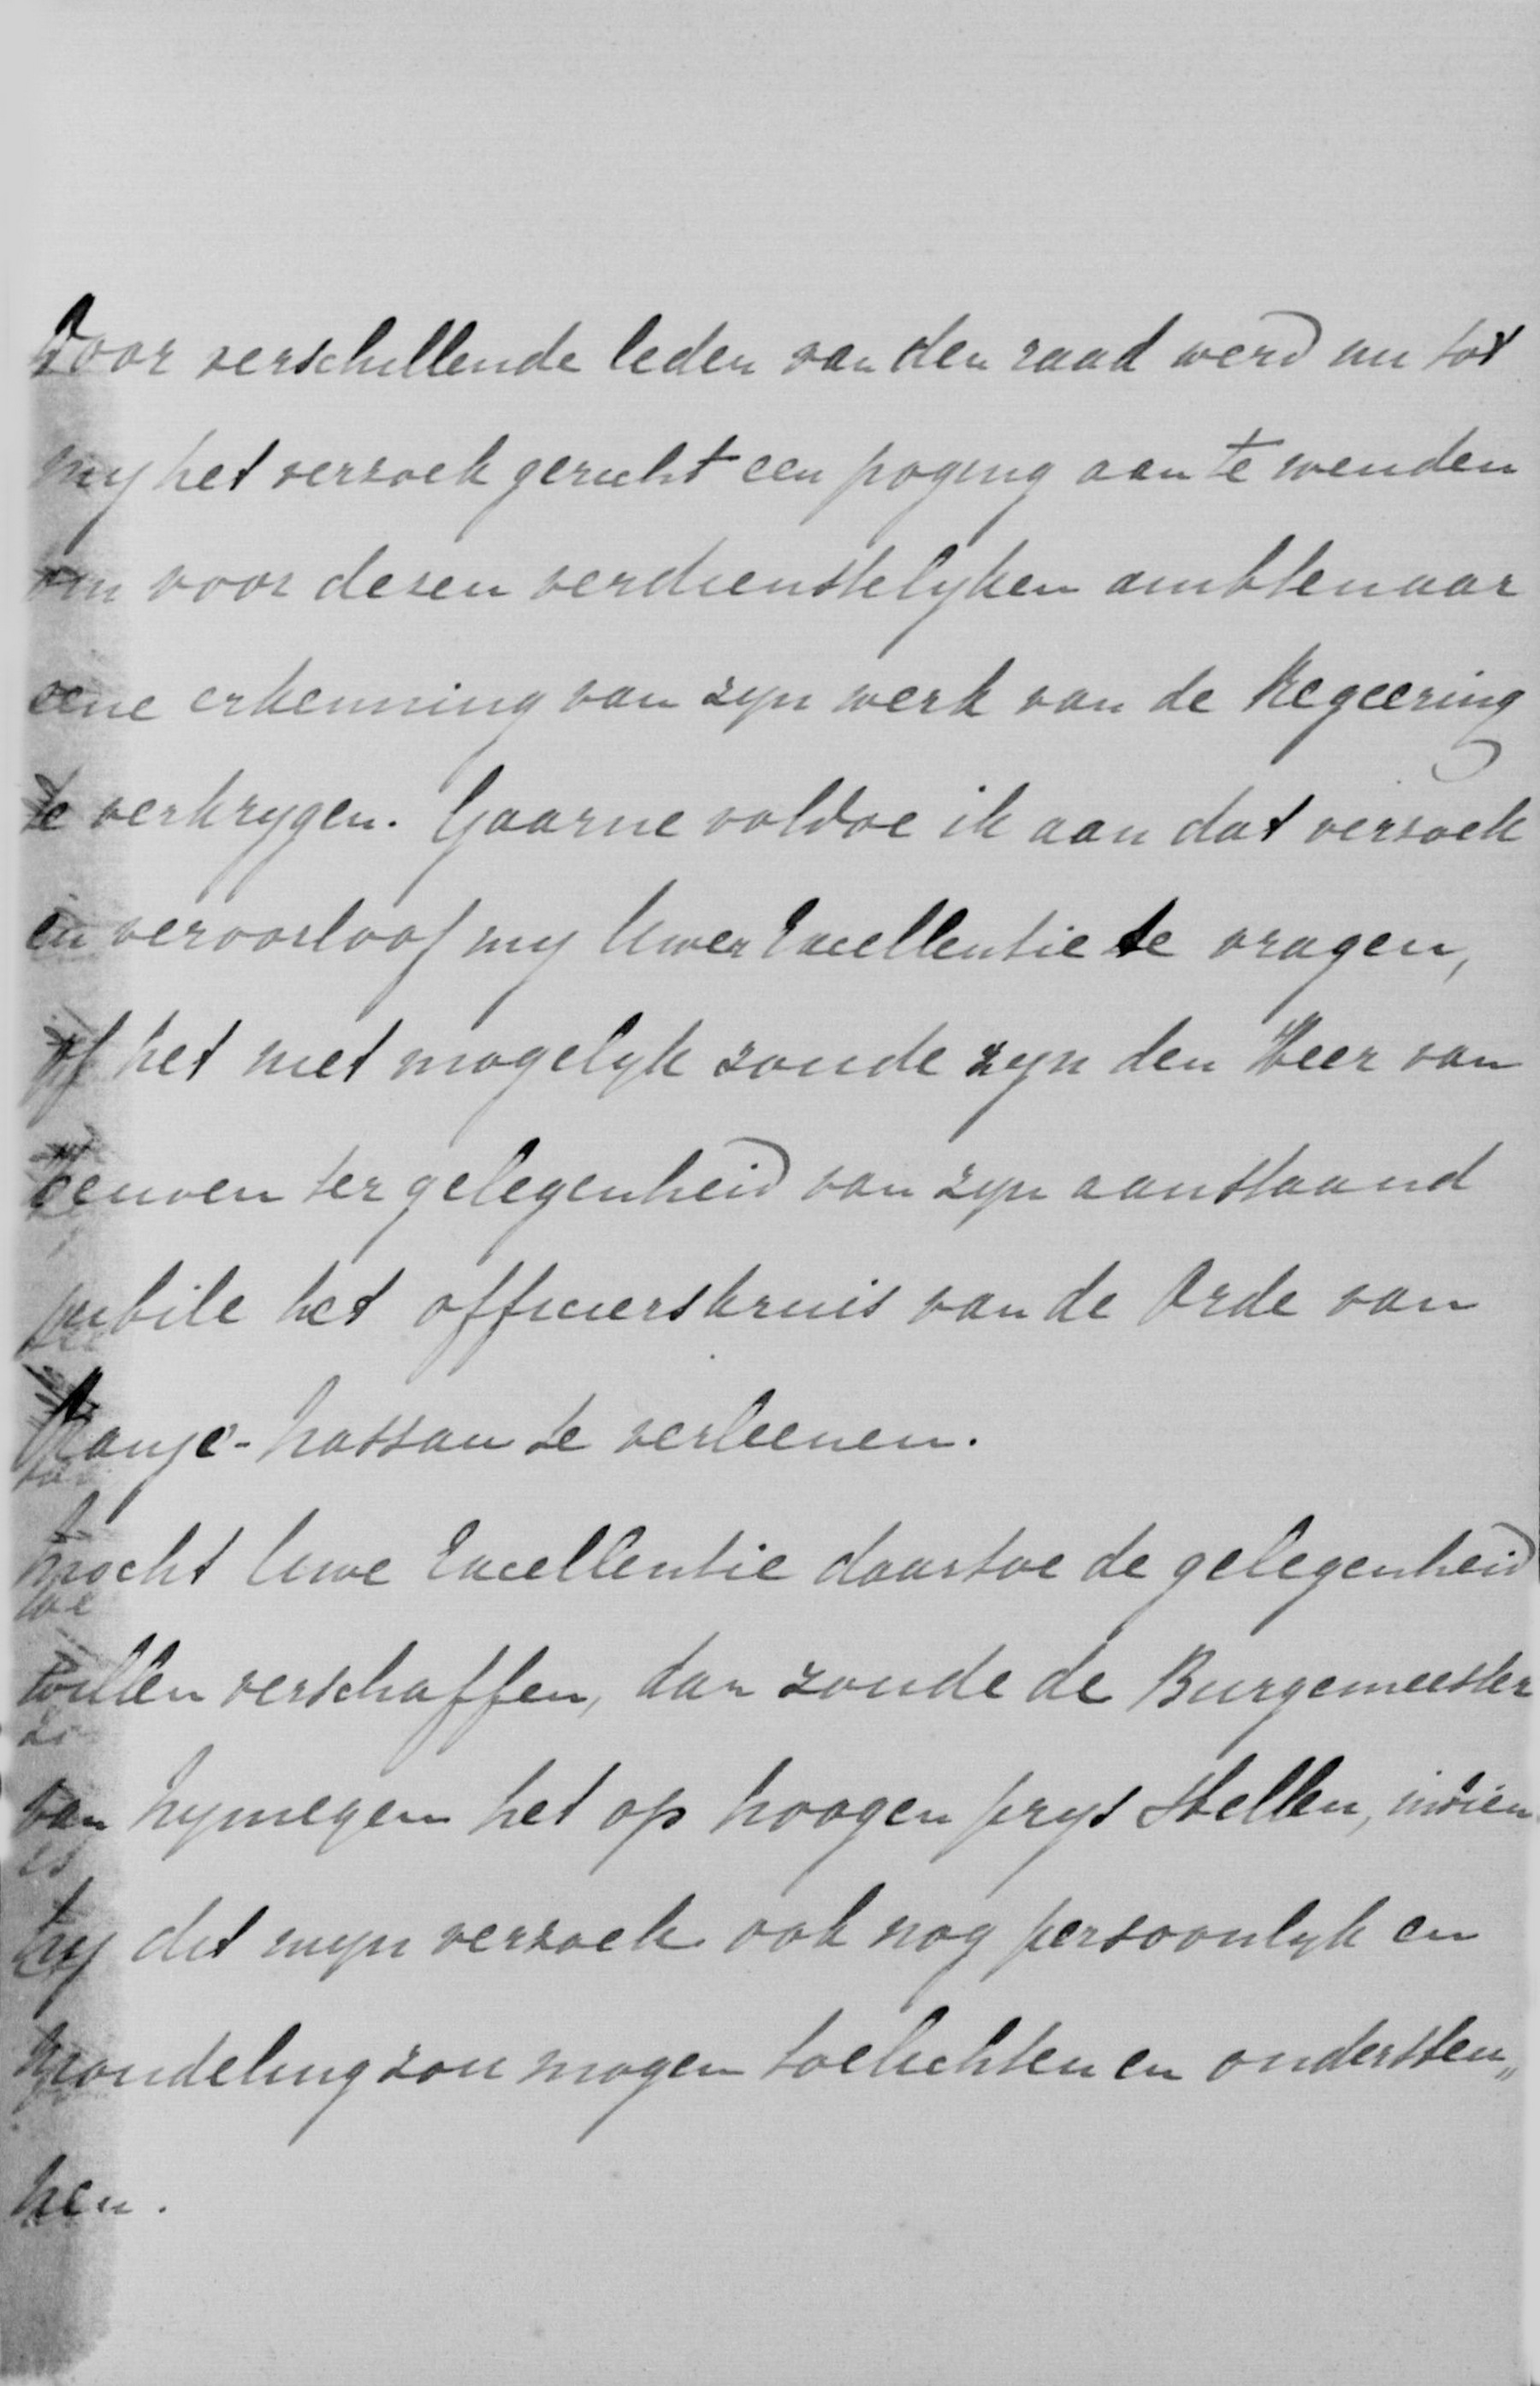 Door verschillende leden van den raad werd nu tot
my het verzoek gericht een poging aan te wenden
om voor dezen verdienstelyken ambtenaar
eene erkenning van zyn werk van de Regeering
te verkrygen. Gaarne voldoe ik aan dat verzoek
en veroorloof my Uwer Excellentie te vragen,
of het niet mogelyk zoude zyn den Heer van
ter gelegenheid van zyn aanstaand
jubile het officierskruis van de Orde van
Oranje-Nassau te verleenen.
Mocht Uwe Excellentie daartoe de gelegenheid
willen verschaffen, dan zoude de Burgemeester
van Nymegen het op hoogen prys stellen, indien
hy dit myn verzoek ook nog persoonlyk en
mondeling zou mogen toelichten en ondersteu„
nen.